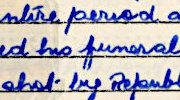 ntire period a
ed his funeral
shot by Republ